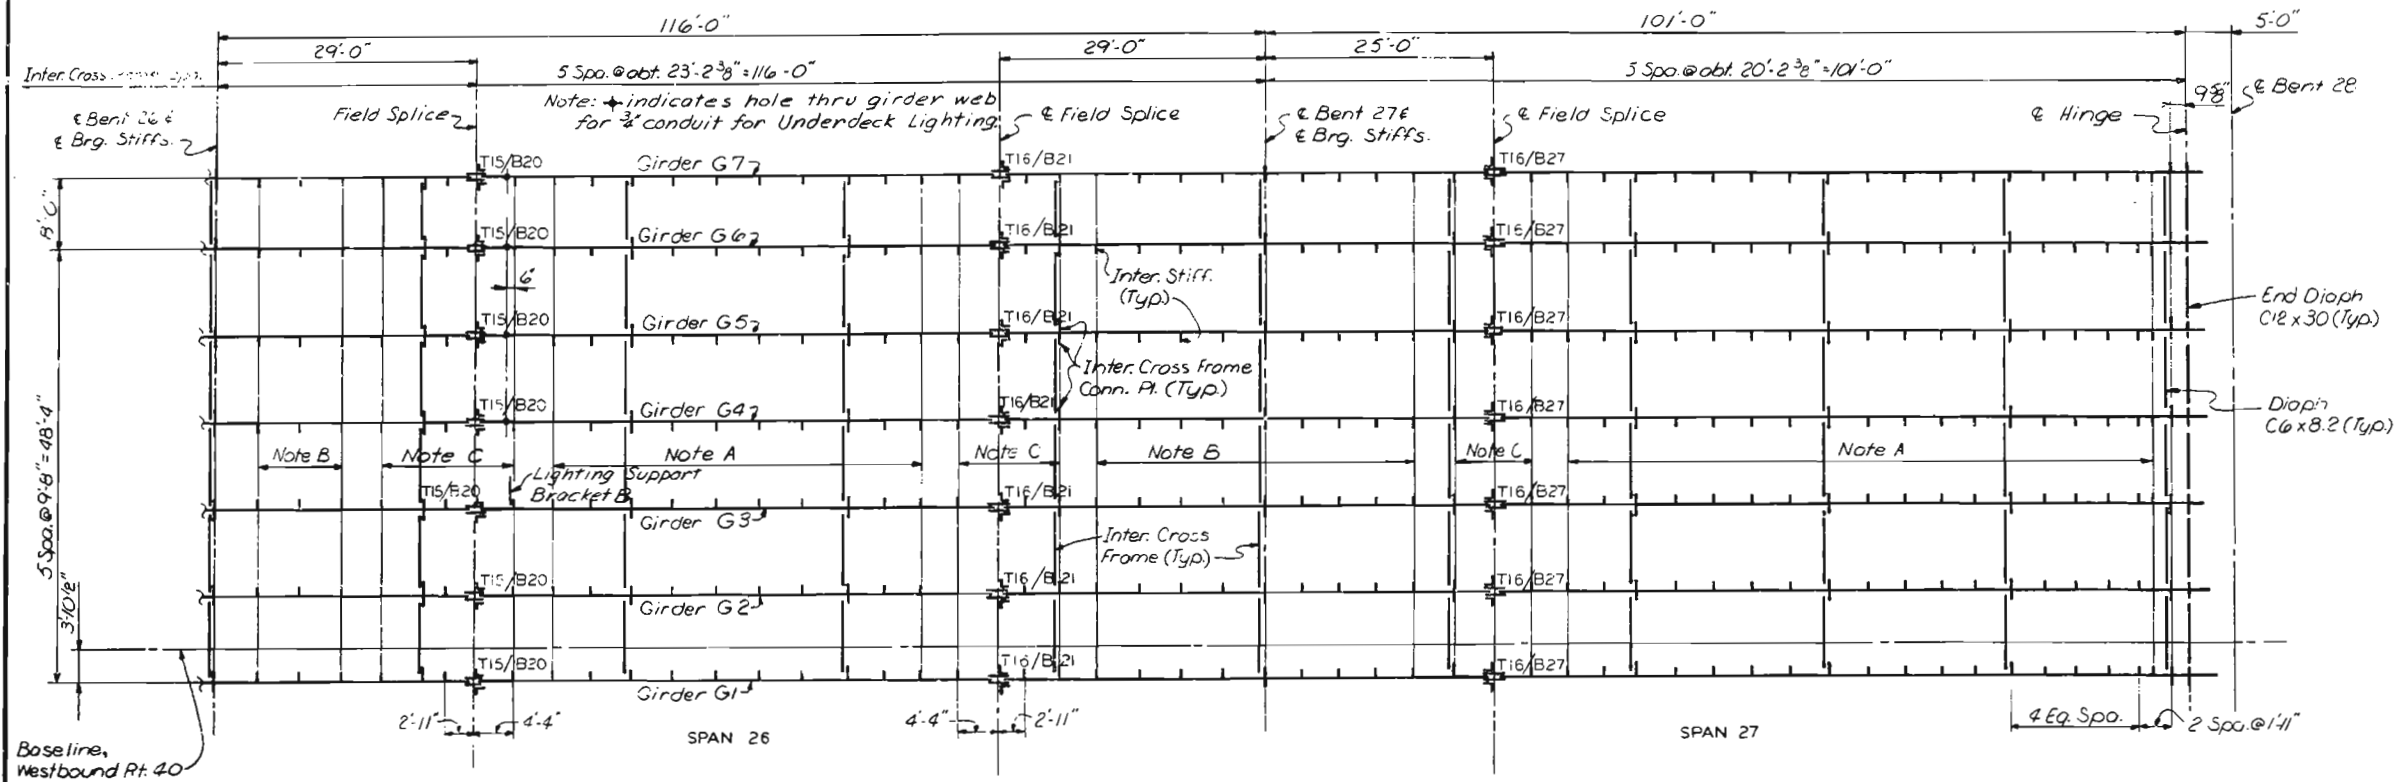 116'-0"
101'-0"
5'-0"
29'-0"
29'-0"
25'-0"
Inter. Cross
5 Spa. @ abt. 23'-2⅜" = 116'-0"
5 Spa. @ abt. 20'-2⅜" = 101'-0"
Note: indicates hole thru girder web
for ¾" conduit for Underdeck Lighting.
℄ Bent 26 &
℄ Brg. Stiffs.
Field Splice
℄ Field Splice
℄ Bent 27 &
℄ Brg. Stiffs.
℄ Field Splice
℄ Hinge
℄ Bent 28
T15/B20
Girder G7
T16/B21
T16/B27
8'-0"
T15/B20
Girder G6
T16/B21
T16/B27
6"
Inter. Stiff.
(Typ.)
End Diaph
C12 x 30 (Typ.)
T15/B20
Girder G5
T16/B21
T16/B27
Inter. Cross Frame
Conn. Pl. (Typ.)
T15/B20
Girder G4
T16/B21
T16/B27
Diaph
C6 x 8.2 (Typ.)
5 Spa. @ 9'-8" = 48'-4"
Note B
Note C
Note A
Note C
Note B
Note C
Note A
Lighting Support
Bracket B
T15/B20
Girder G3
T16/B21
T16/B27
Inter. Cross
Frame (Typ.)
T15/B20
Girder G2
T16/B21
T16/B27
3'-10½"
T15/B20
Girder G1
T16/B21
T16/B27
2'-11"
4'-4"
4'-4"
2'-11"
4 Eq. Spa.
2 Spa. @ 1'-11"
SPAN 26
SPAN 27
Baseline,
Westbound Rt. 40